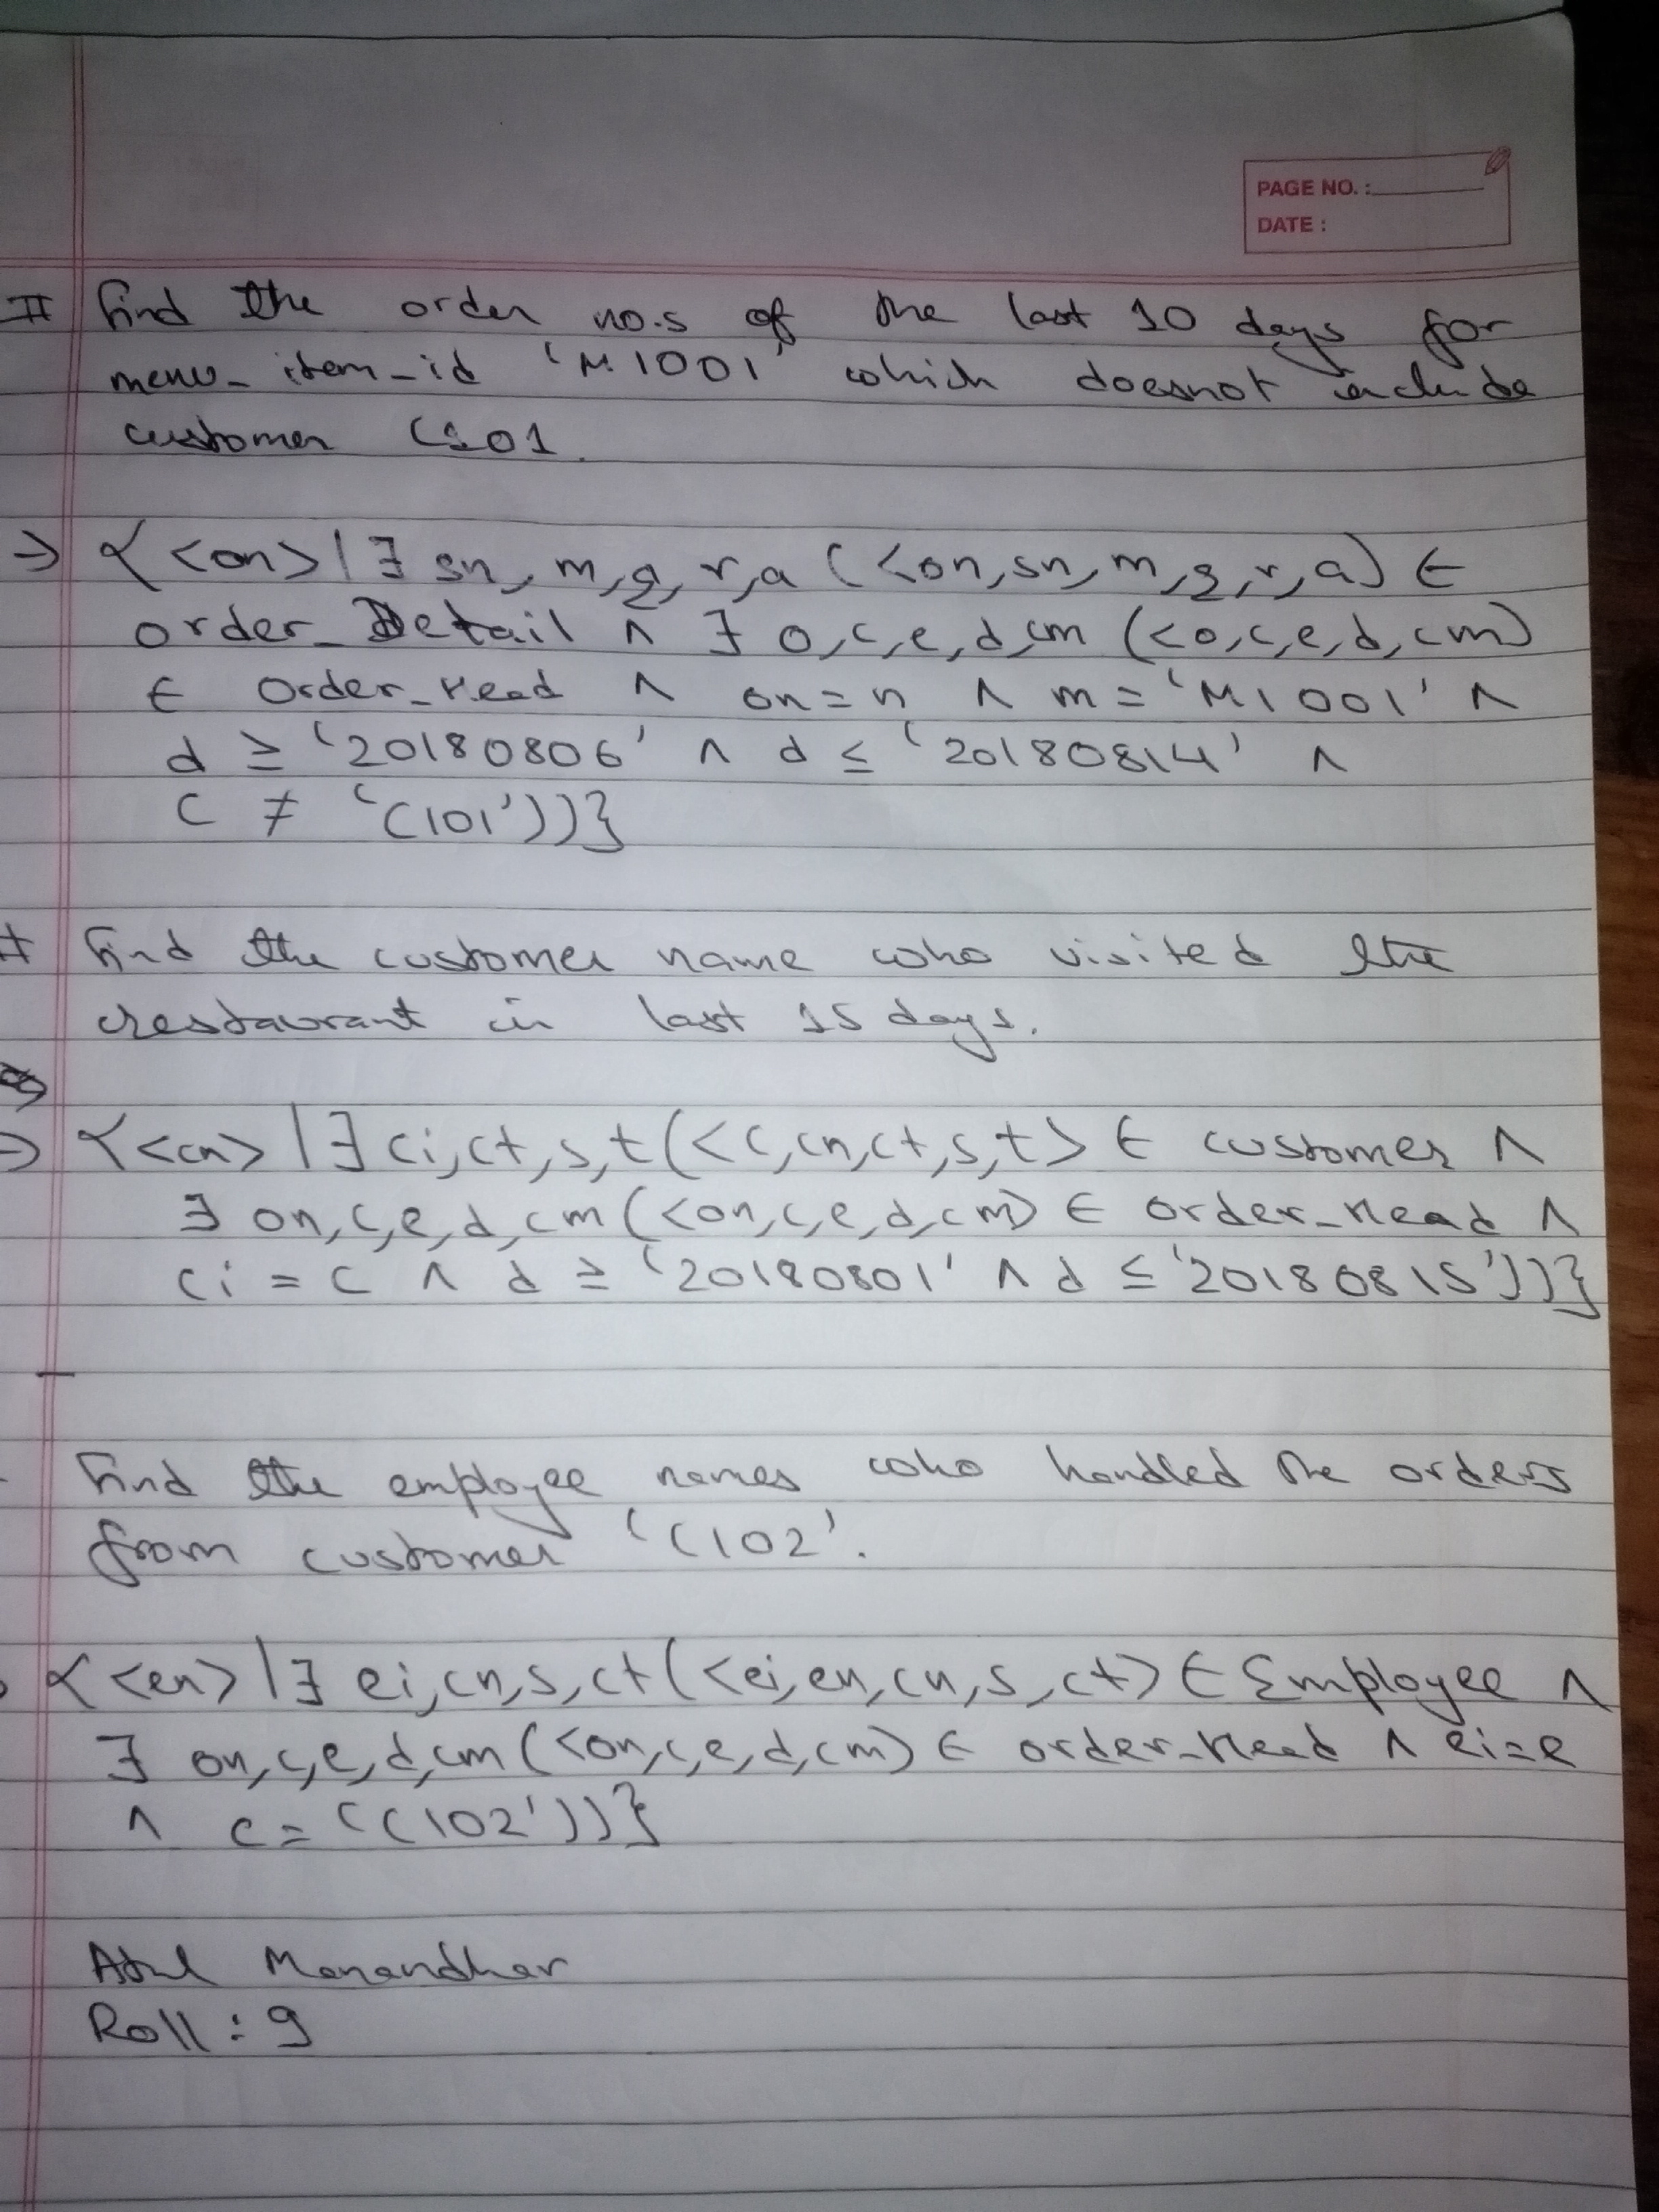 PAGE NO. :
DATE :
# Find the order no.s of the last 10 days for
menu_item_id 'M1001' which doesnot include
customer C101.
→ {<on>|∃ sn, m,q, r,a (<on,sn,m,q,r,a) ∈
order_Detail ∧ ∃ o,c,e,d,cm (<o,c,e,d,cm)
∈ Order_Head ∧ on = n ∧ m = 'M1001' ∧
d ≥ '20180806' ∧ d ≤ '20180814' ∧
C ≠ 'C101'))}
# Find the customer name who visited the
restaurant in last 15 days.
→ {<cn> |∃ ci,ct,s,t(<c,cn,ct,s,t> ∈ customer ∧
∃ on,c,e,d,cm(<on,c,e,d,cm) ∈ order_Head ∧
ci = c ∧ d ≥ '20180801' ∧ d ≤ '20180815'))}
Find the employee names who handled the orders
from customer 'C102'.
{<en>|∃ ei,cn,s,ct(<ei,en,cn,s,ct> ∈ Employee ∧
∃ on,c,e,d,cm(<on,c,e,d,cm) ∈ order_Head ∧ ei=e
∧ c = 'C102'))}
Atul Manandhar
Roll : 9